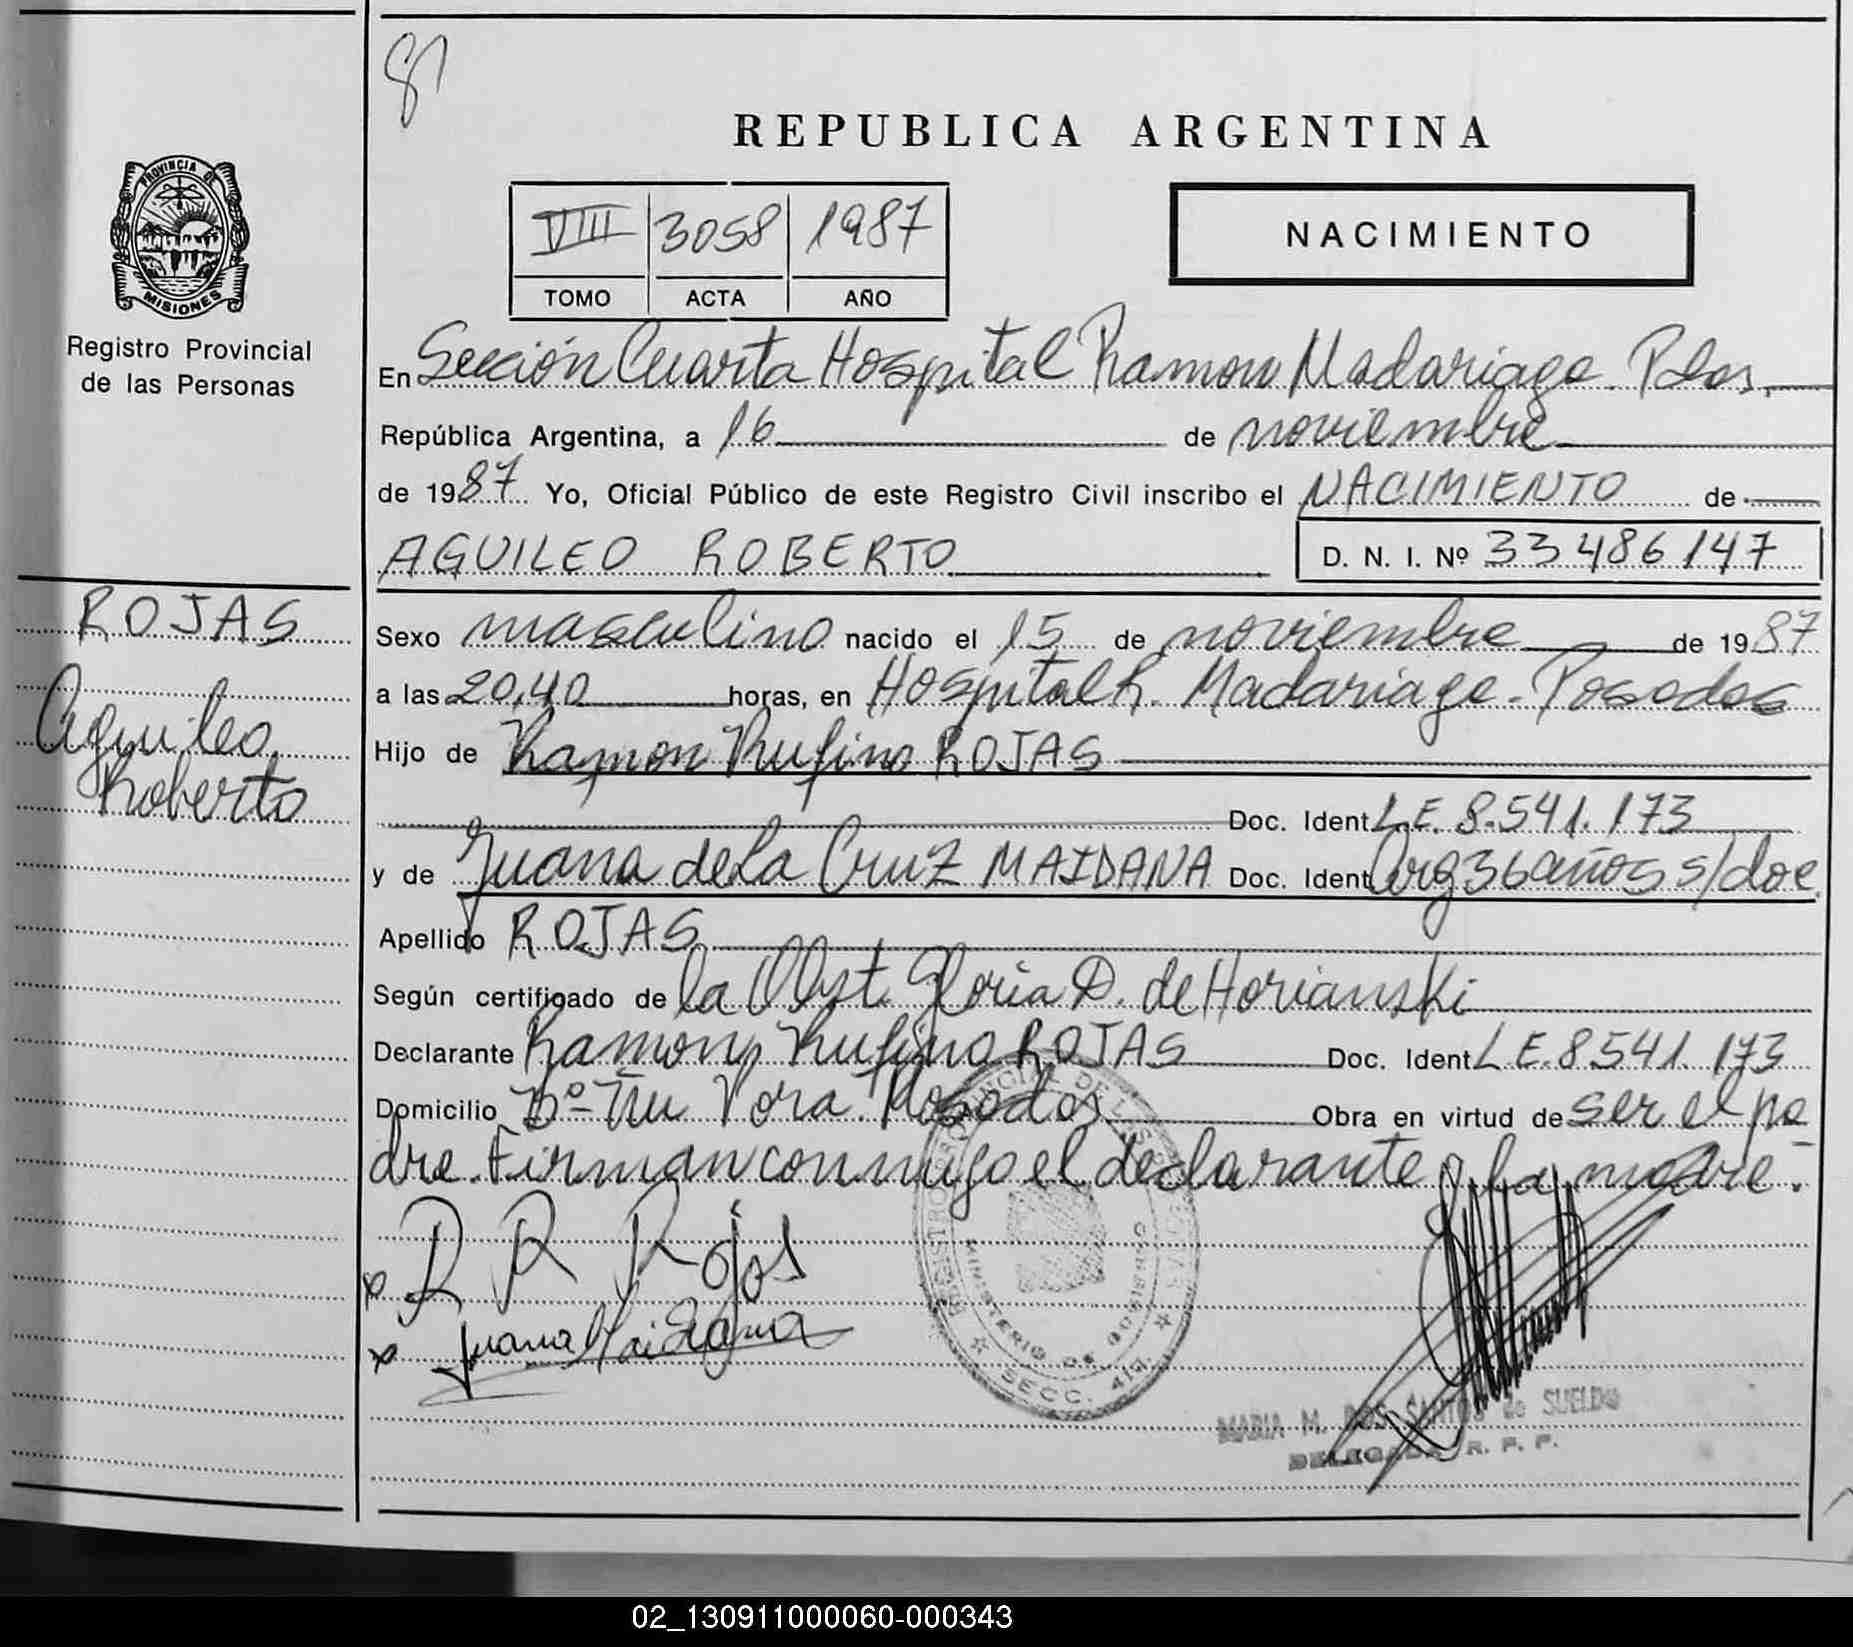 81
REPUBLICA ARGENTINA
PROVINCIA DE
MISIONES
Registro Provincial
de las Personas
VIII 3058 1987
TOMO ACTA AÑO
NACIMIENTO
En Sección Cuarta Hospital Ramon Madariaga. Pdas.
República Argentina, a 16 de noviembre
de 1987. Yo, Oficial Público de este Registro Civil inscribo el NACIMIENTO de
AGUILEO ROBERTO
D. N. I. Nº 33486147
ROJAS
Aguileo
Roberto
Sexo masculino nacido el 15 de noviembre de 1987
a las 20,40 horas, en Hospital R. Madariaga - Posadas
Hijo de Ramon Rufino ROJAS
Doc. Ident L.E. 8.541.173
y de Juana de la Cruz MAIDANA Doc. Ident Arg 36 años s/doc.
Apellido ROJAS
Según certificado de la Obst. Gloria D. de Horianski
Declarante Ramon Rufino ROJAS Doc. Ident L.E. 8541.173
Domicilio Bº Tiu Vora. Posadas Obra en virtud de ser el pa
dre. Firman conmigo el declarante y la madre.
x R R Rojas
x Juana Maidana
REGISTRO PROVINCIAL DE LAS PERSONAS
MINISTERIO DE GOBIERNO
SECC. 4ta.
MARIA M. DOS SANTOS de SUELDO
DELEGADA R. P. P.
02_130911000060-000343